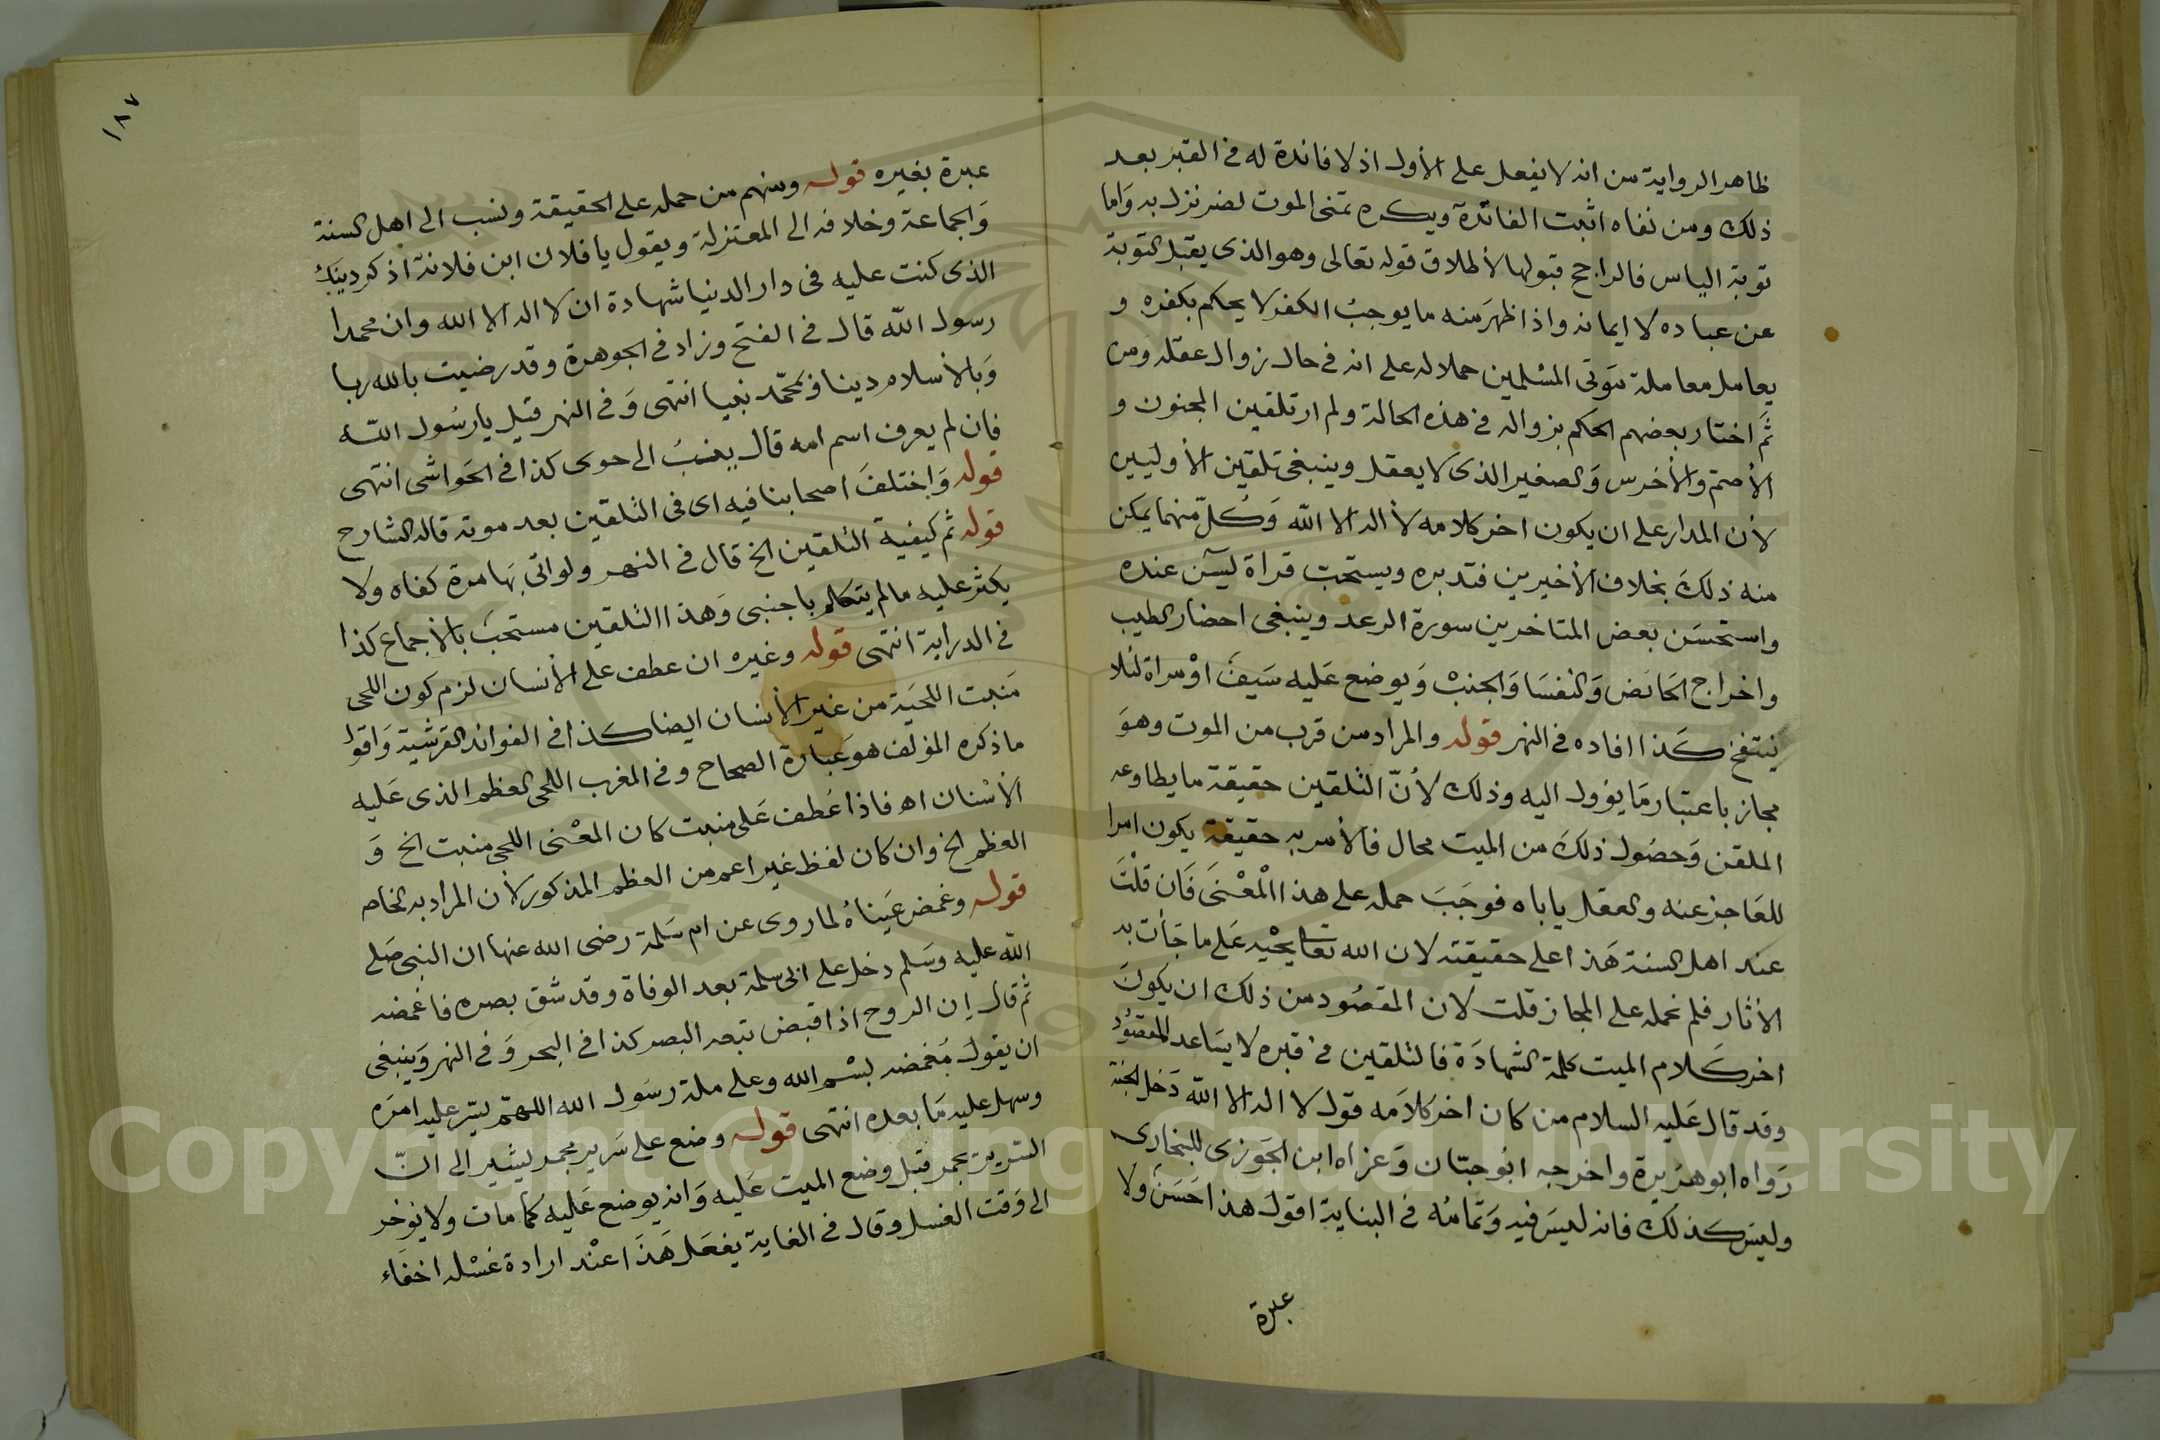 ظاهر الرواية من انه لا يفعل على الأول اذ لا فائدة له في القبر بعد
ذلك ومن نفاه اثبت الفائدة ويكره تمنى الموت لضر نزل به وَاما
توبة الياس فالراجح قبولها لأطلاق قوله تعالى وهو الذى يقبل التوبة
عن عباده لا ايمانه واذا ظهرَ منه ما يوجبُ الكفر لا يحكم بكفره و
يعامل معاملة مَوتى المسْلمين حملا له على انه في حال زوال عقله ومن
ثَم اختار بعضهم الحكم بزواله في هذه الحالة ولم ار تلقين المجنون و
الأصم والأخرس وَالصغير الذى لا يعقل وينبغي تلقين الأوليين
لأن المدار على ان يكون اخر كلامه لا اله الا الله وَكُل منهما يمكن
منه ذلكَ بخلاف الأخيرين فتدبره ويستحب قراة ليسَن عنده
واستحسَن بعض المتاخرين سورة الرعد وينبغى احضار الطيب
واخراج الحَائض وَالنفسَا وَالجنبْ وَيوضع عَليه سَيفَ اوْ مراة لئلا
ينتفخ كَذا افاده في النهر قوله والمراد من قرب من الموت وهوَ
مجاز باعتبار مَا يؤول اليه وذلك لأنّ التلقين حقيقة ما يطاوعه
الملقن وَحصُول ذلكَ من الميت محال فالأمر به حقيقة يكون امرا
للعَاجز عنه والعقل ياباه فوجَبَ حمله على هذا الْمعْنىَ فَان قلْتَ
عند اهل السنة هَذا على حقيقته لان الله تعا يحْيه عَلى ما جَأت به
الأثار فلم نحمله على المجاز قلت لان المقصُود من ذلك ان يكونَ
اخر كَلام الميت كلمة الشهادَة فالتلقين في قبره لا يسَاعد المقصُود
وقد قال عَليه السلام من كان اخر كلاَمه قول لا اله الا الله دَخل الجنة
رَواه ابو هرَيرة واخرجه ابوُ حبّان وَعزاه ابن الجَوزى للبخارى
وليسَ كذلك فانه ليسَ فيه وَتمامُه في البناية اقول هذا احَسَنْ ولا
عبرة
١٨٧
عبرة بغيره قوله ومنهم من حمله على الحقيقة ونسب الى اهل السنة
وَالجماعة وخلافه الى المعتزلة ويقول يا فلان ابن فلانة اذكر دينكَ
الذى كنت عليه فى دار الدنيا شهادة ان لا اله الا الله وان محمدا
رسول الله قال في الفتح وزاد في الجوهرة وقد رضيت بالله ربا
وَبالأسلام دينا وَبمحمّد نبيا انتهى وَفى النهر قيل يا رسُول الله
فان لم يعرف اسم امه قال ينسَبُ الى حوى كذا في الحَواشى انتهى
قوله وَاختلفَ اصحابنا فيه اى فى التلقين بعد موته قاله الشارح
قوله ثم كيفية التلقين الخ قال في النهر ولو اتى بَها مرة كفاه ولا
يكثر عليه ما لم يتكلم باجنبى وَهذا التلقين مستحبَ بالأجماع كذا
في الدراية انتهى قوله وغيره ان عطف على الأنسان لزم كون اللحى
مَنبت اللحيَة من غير الأنسان ايضا كذا في الفوائد القرشية وَاقول
ما ذكره المؤلف هو عَبارة الصحاح وفى المغرب اللحى العظم الذى عَليه
الأسْنان اه فاذا عُطف عَلى منبت كان المعْنى اللحى منبت الخ وَ
العظم الخ وان كان لفظ غير اعم من العظم المذكور لأن المراد به الخاص
قوله وغمض عَيناهُ لما روى عن ام سَلمة رضى الله عنها ان النبى صَلى
الله عليه وَسَلم دخل على ابى سلمة بعد الوفاة وقد شق بصره فاغمضه
ثم قال إن الروح اذا قبض تبعه البصر كذا في البحر وَفى النهر وَينبغى
ان يقولَ مُغمضه بسْم الله وعلى ملة رسَول الله اللهمّ يسّر عليه امرَه
وسهل عليه مَا بعده انتهى قوله وضع على سَرير مجمر ليشير الى انّ
السرير يجمر قبل وضع الميت عَليه وَانه يوضع عَليه كما مات ولا يؤخر
الى وَقت الغسل وقال في الغاية يفعَل هَذا عنْد ارادة غسْله اخفَاء
Copyright © King Saud University